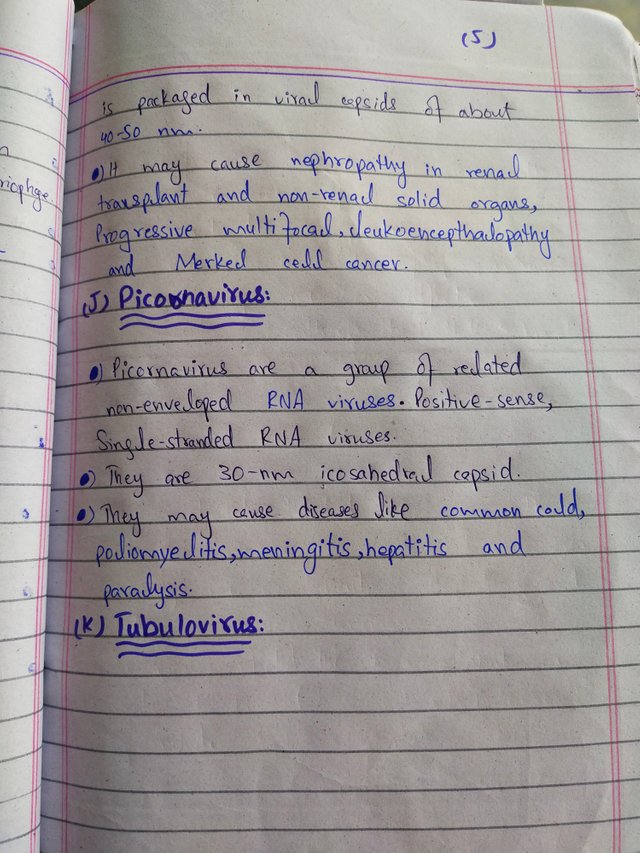 (5)
is packaged in viral capsids of about
40-50 nm.
•) It may cause nephropathy in renal
transplant and non-renal solid organs,
Progressive multifocal, leukoencepthalopathy
and Merkel cell cancer.
(J) Picornavirus:
•) Picornavirus are a group of related
non-enveloped RNA viruses. Positive-sense,
Single-stranded RNA viruses.
•) They are 30-nm icosahedral capsid.
•) They may cause diseases like common cold,
poliomyelitis, meningitis, hepatitis and
paralysis.
(K) Tubulovirus: